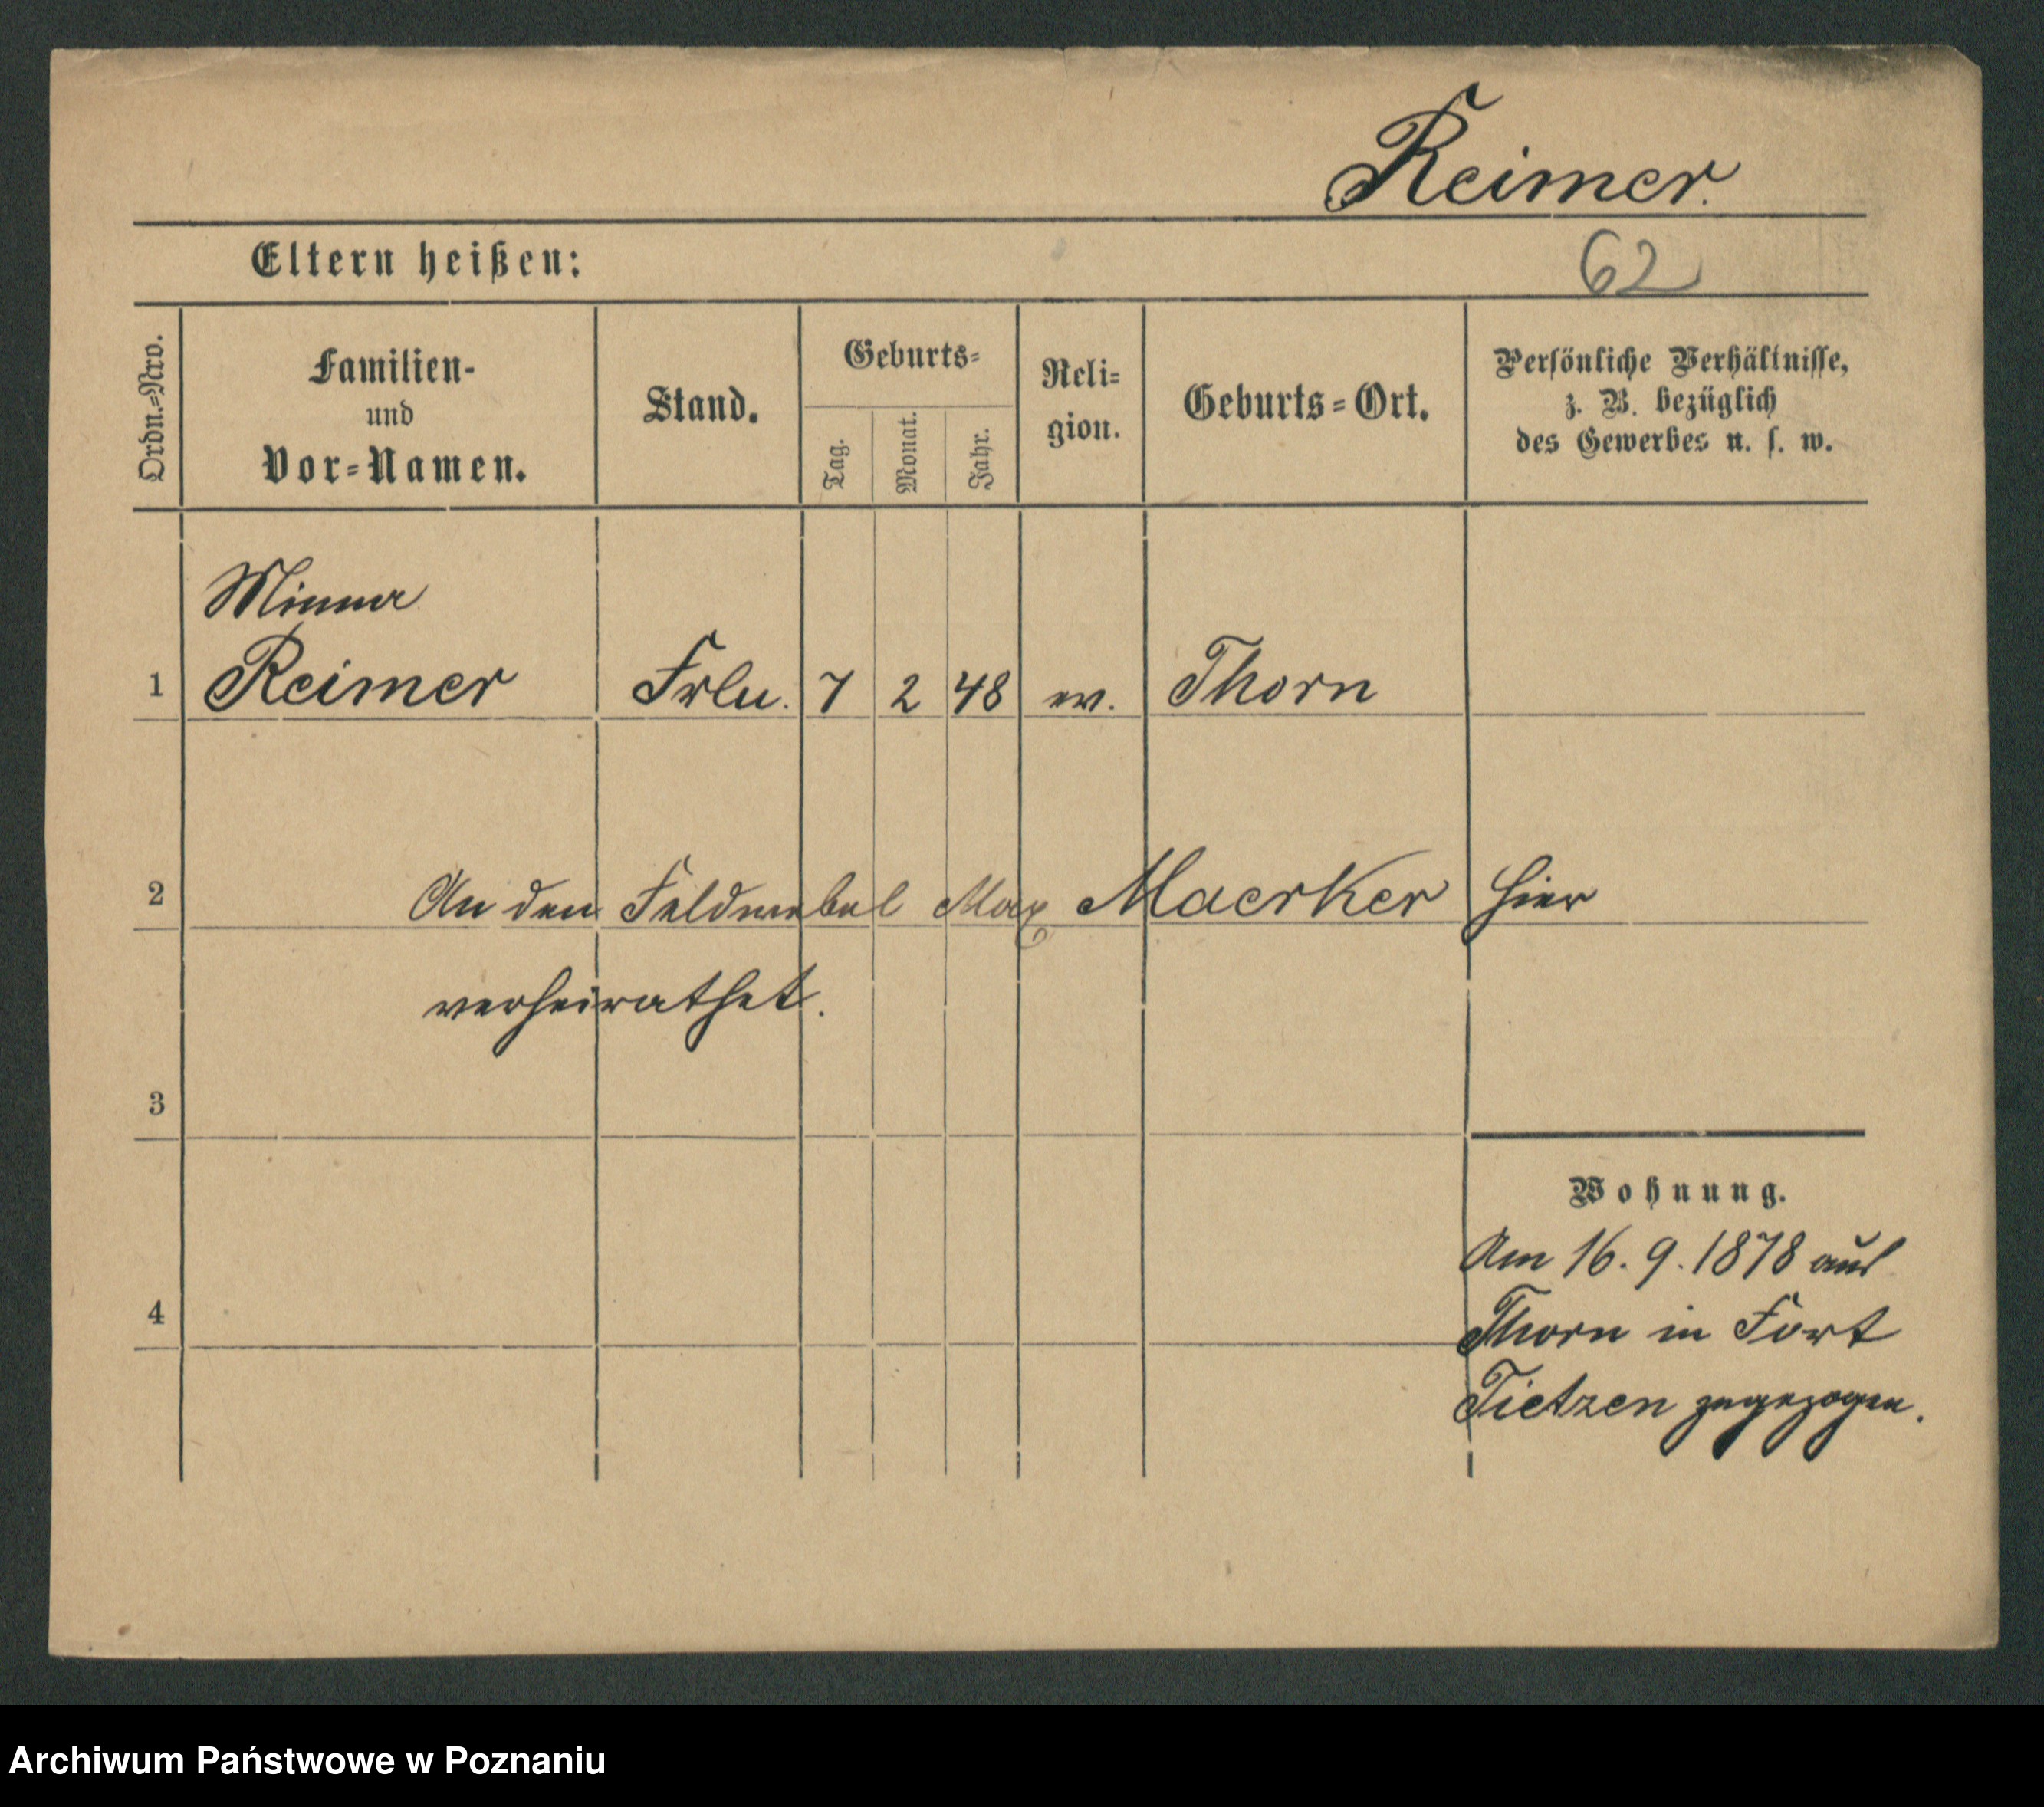 Reimer.
Eltern heißen:
62
Ordn.=Nro.
Familien-
und
Vor=Namen.
Stand.
Geburts=
Tag.
Monat.
Jahr.
Reli=
gion.
Geburts=Ort.
Persönliche Verhältnisse,
z. B. bezüglich
des Gewerbes u. s. w.
Minna
1 Reimer Frln. 7 2 48 ev. Thorn
2 An den Feldwebel Max Maerker hier
verheirathet.
3
Wohnung.
Am 16. 9. 1878 aus
4 Thorn in Fort
Tietzen zugezogen.
Archiwum Państwowe w Poznaniu